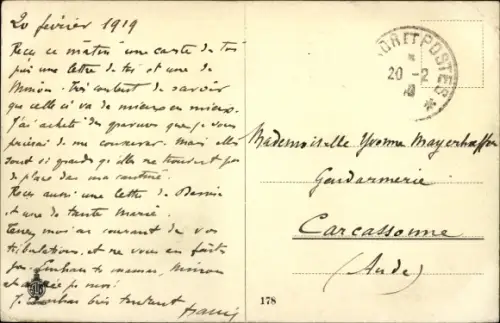 20 février 1919
Reçu ce matin une carte de toi
puis une lettre de toi et une de
Mimon. Très content de savoir
que celle ci va de mieux en mieux.
J'ai acheté des gravures que je vous
prierai de me conserver. Mais elles
sont si grands qu'elle ne trouvent pas
de place dans ma cantine.
Reçu aussi une lettre de
et une de tante Marie.
Tenez moi au courant de vos
tribulations, et ne vous en faites
pas. Embrasse maman, Mimon
et moi.
Je bien tendrement
POSTES
20-2
Mademoiselle Yvonne Mayerhoffer
Gendarmerie
Carcassonne
(Aude)
178